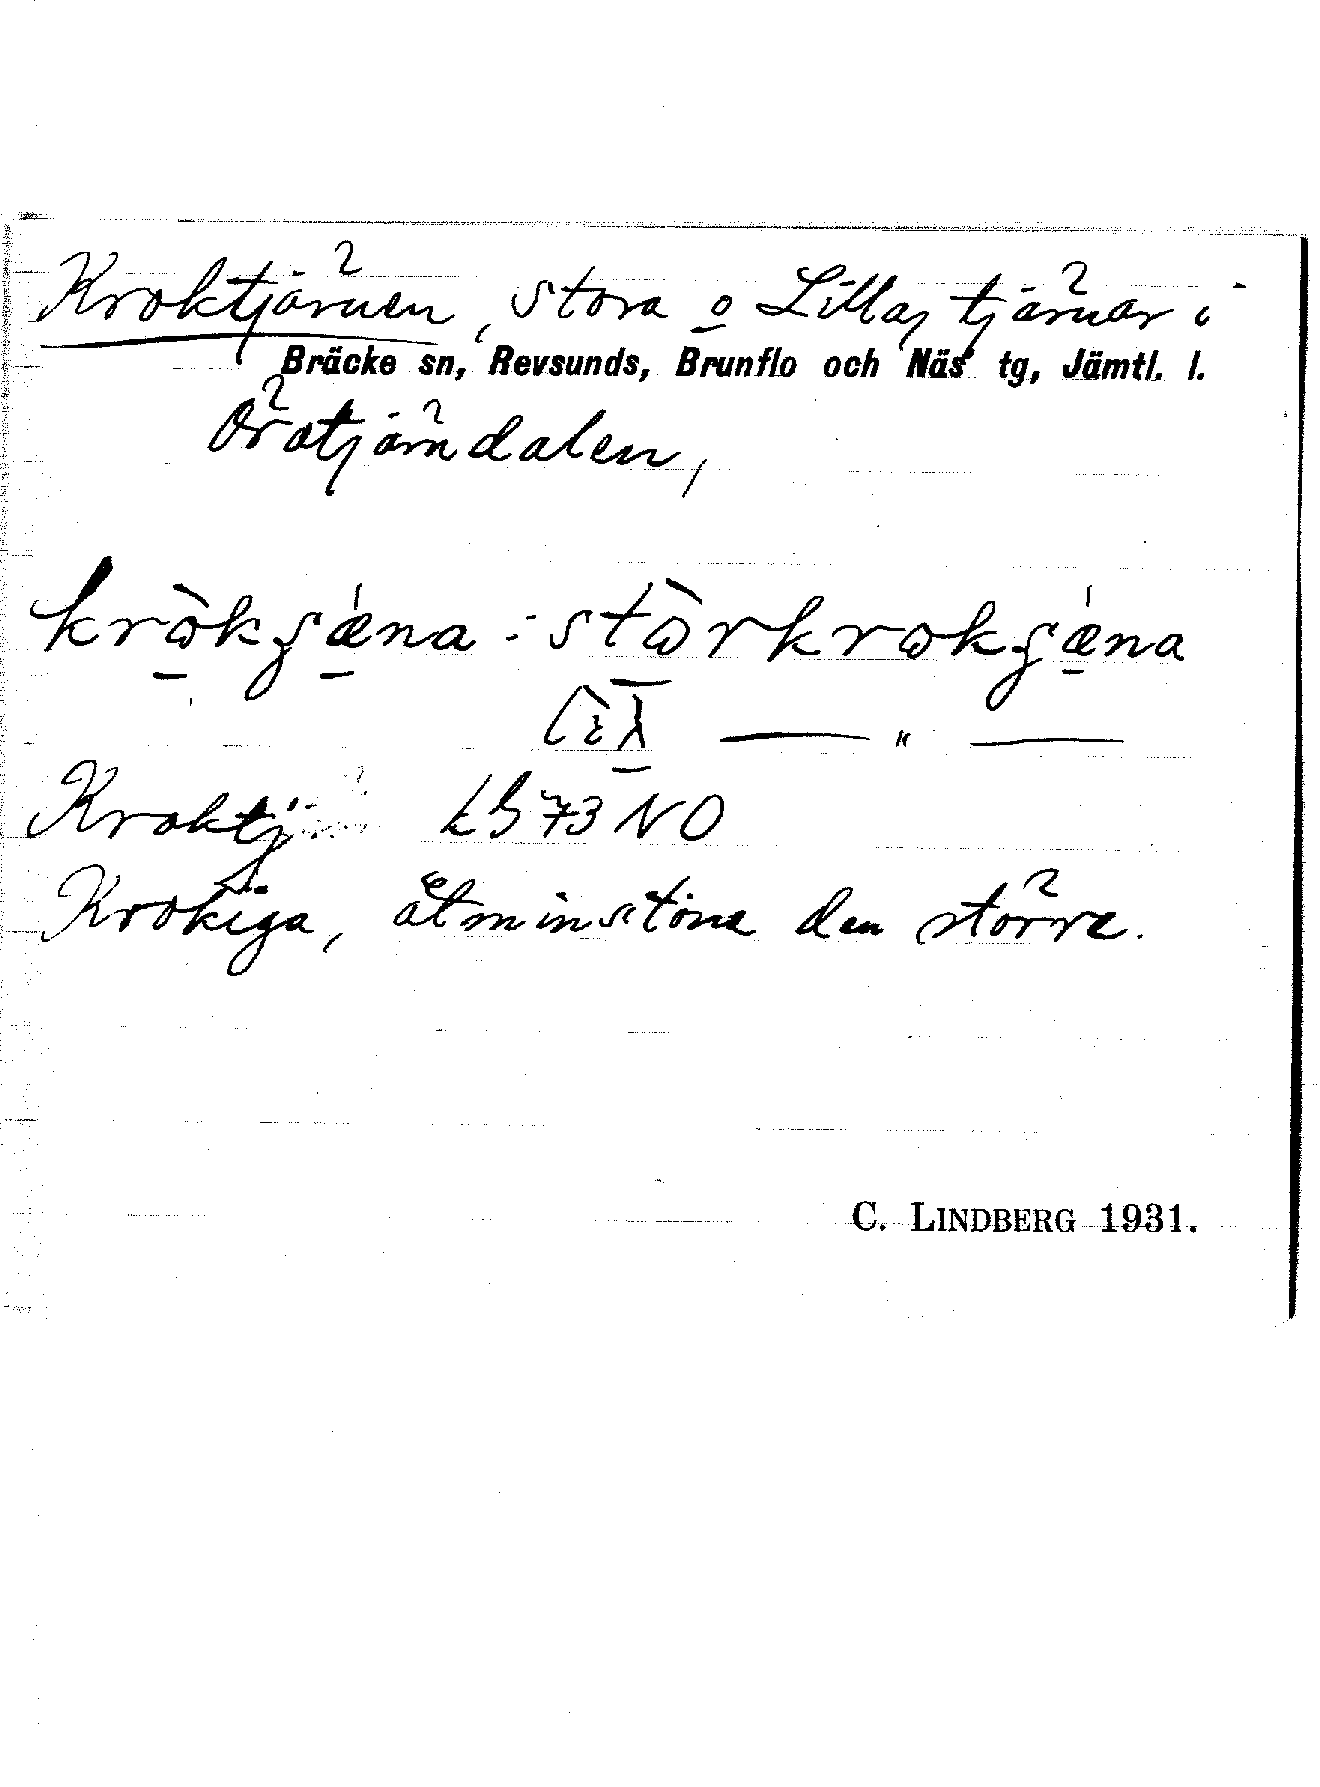 Kroktjärnen, Stora o Lilla, tjärnar i
Bräcke sn, Revsunds, Brunflo och Näs tg, Jämtl. l.
Öratjärndalen,
stòrkrokʂǽna
— " —
Kroktj
73 NO
Krokiga, åtminstone den större.
C. LINDBERG 1931.